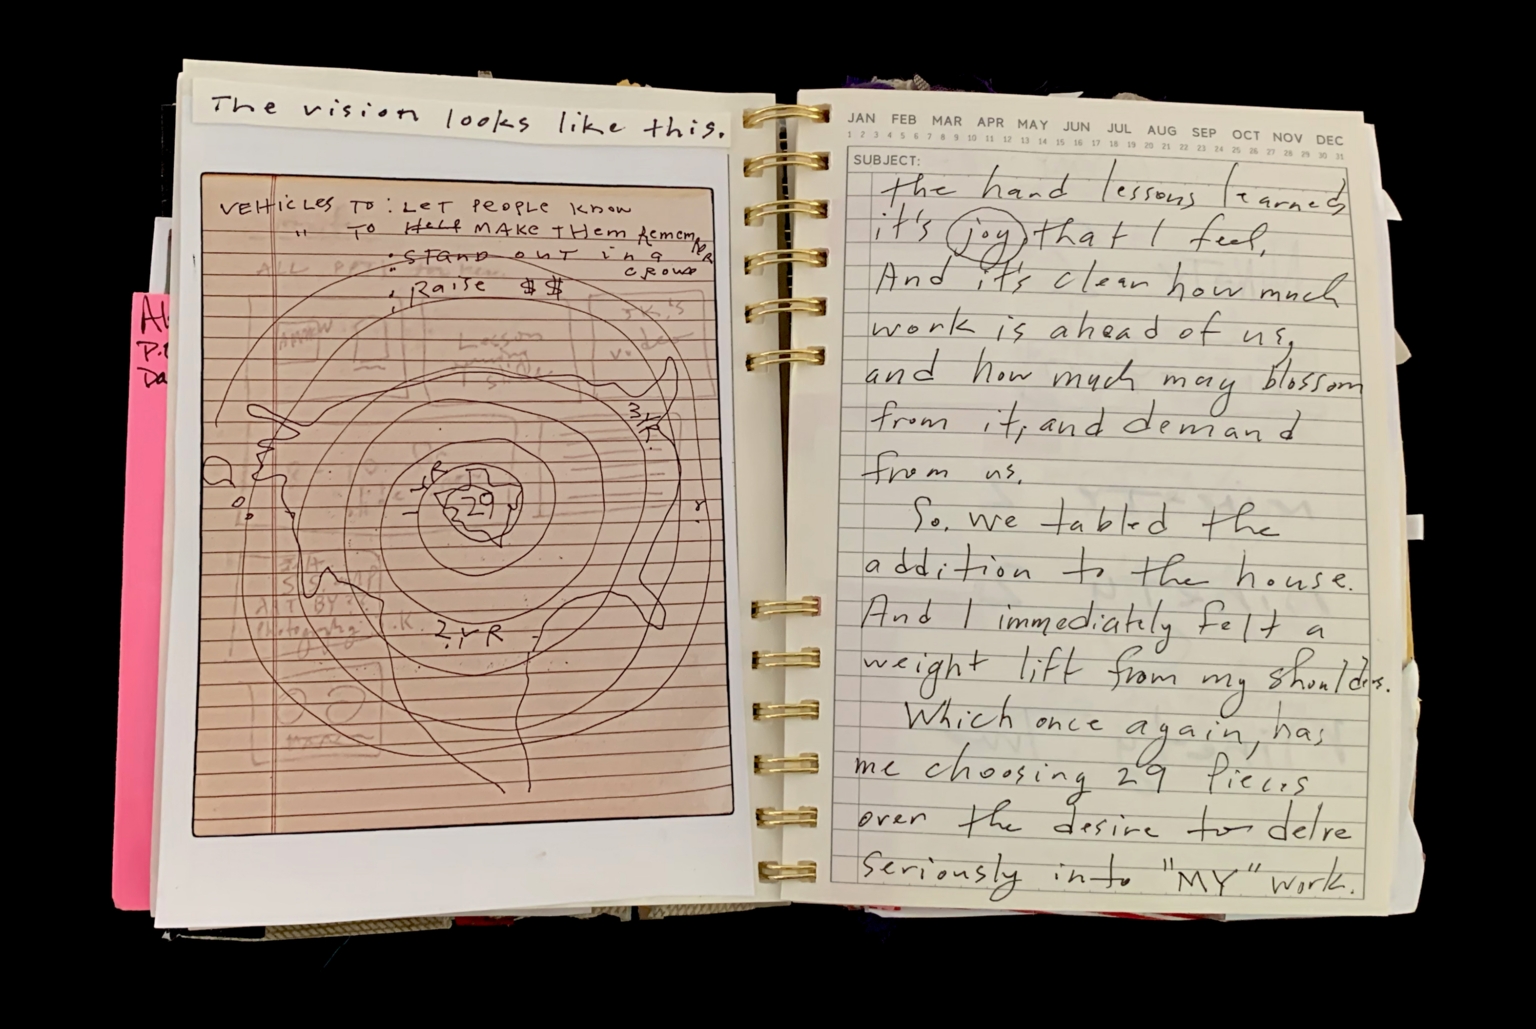 The vision looks like this.
VEHICLES TO : LET PEOPLE KNOW
" TO HELP MAKE THEM REMEMBER
: STAND OUT in a
CROWD
: Raise $$
ALL
Lesson
3K's
video
3YR
1YR
29
2YR
ART BY:
Photography: K.
Al
P.
Da
JAN FEB MAR APR MAY JUN JUL AUG SEP OCT NOV DEC
1 2 3 4 5 6 7 8 9 10 11 12 13 14 15 16 17 18 19 20 21 22 23 24 25 26 27 28 29 30 31
SUBJECT:
the hard lessons learned
it's joy that I feel,
And it's clear how much
work is ahead of us,
and how much may blossom
from it, and demand
from us.
So, we tabled the
addition to the house.
And I immediately felt a
weight lift from my shoulders.
Which once again, has
me choosing 29 Pieces
over the desire to delve
seriously into "MY" work.